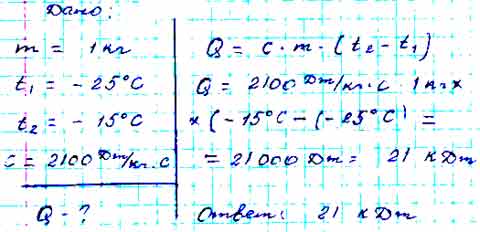 Дано:
m = 1 кг
t₁ = - 25°C
t₂ = - 15°C
c = 2100 Дж/кг·С
Q - ?
Q = c · m · (t₂ - t₁)
Q = 2100 Дж/кг·С · 1 кг x
x (- 15°C - (- 25°C) =
= 21000 Дж = 21 кДж
Ответ: 21 кДж